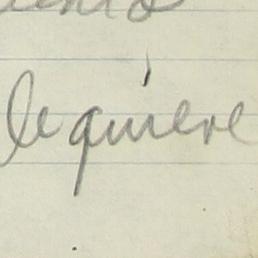 le quiere